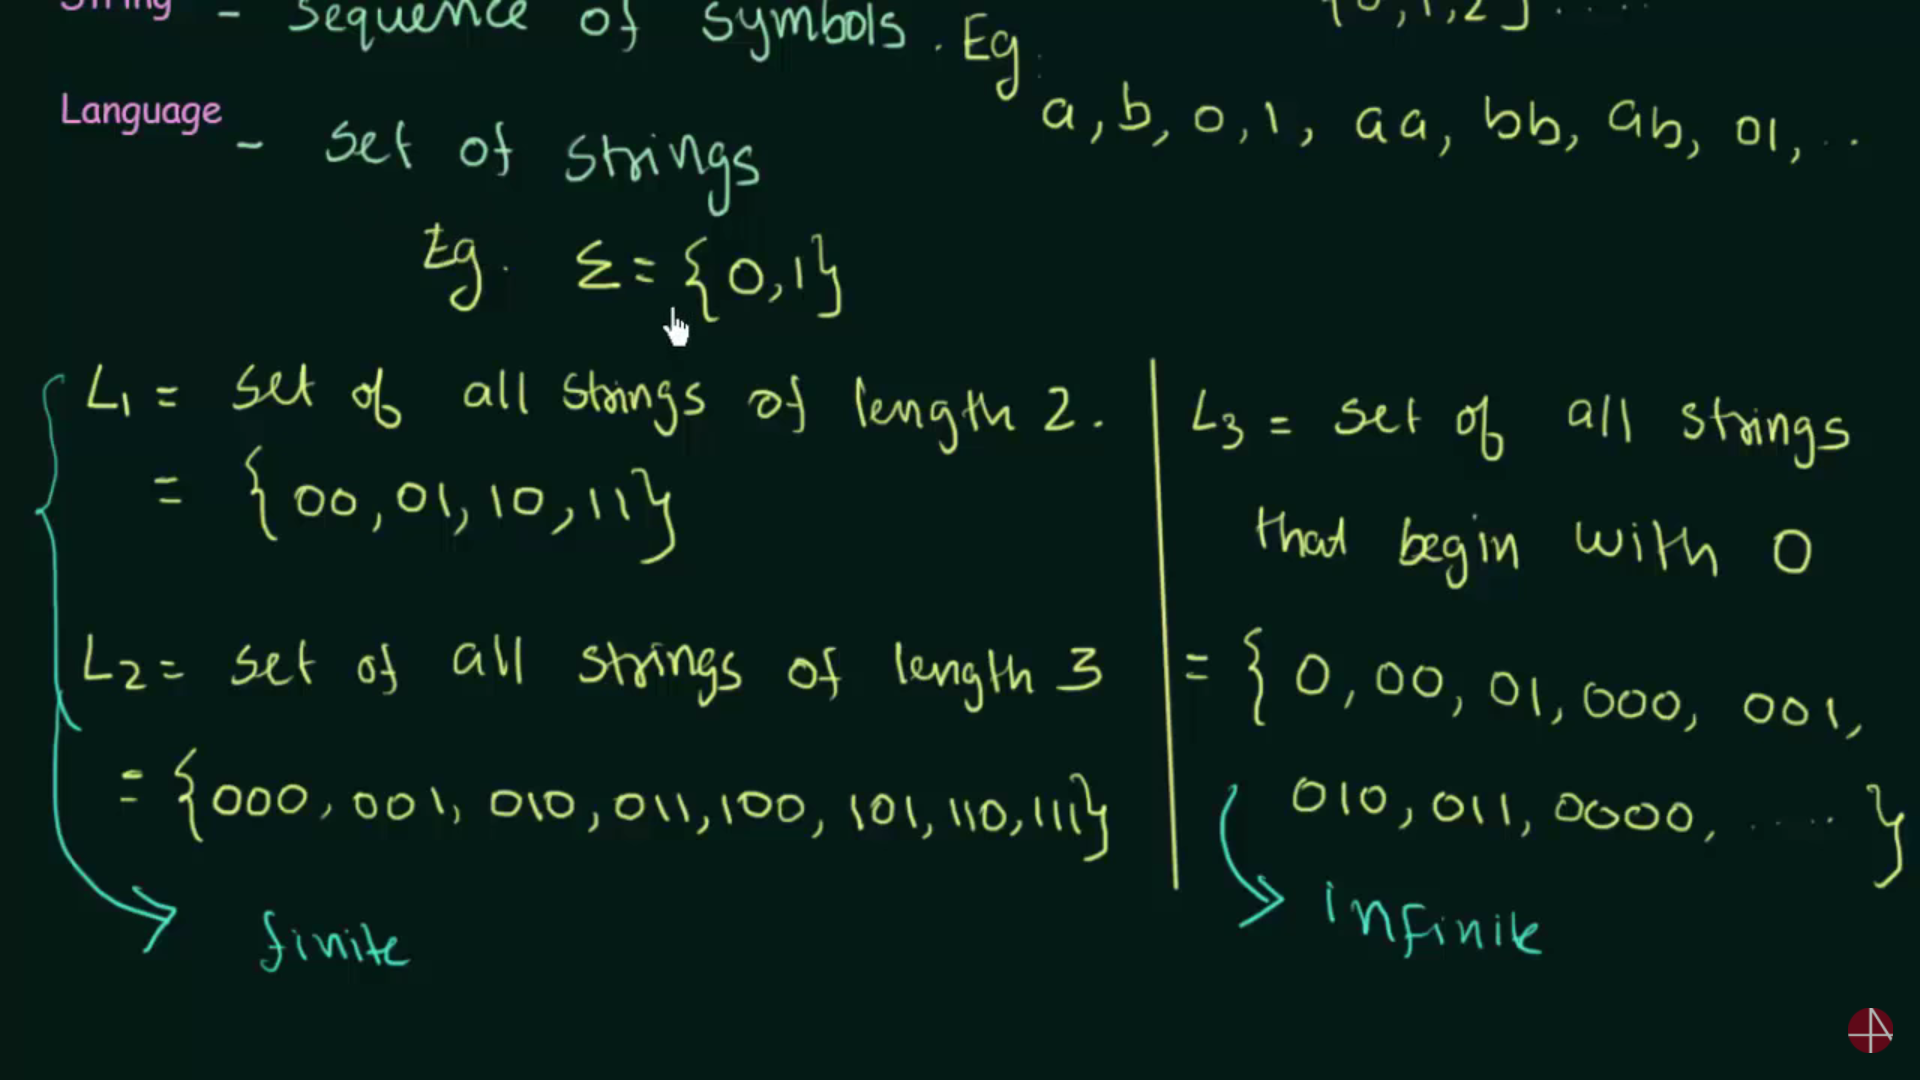 String - Sequence of symbols. Eg
{0,1,2}....
a, b, 0, 1, aa, bb, ab, 01, ..
Language - set of strings
Eg. Σ = {0,1}
L1 = set of all strings of length 2.
= {00, 01, 10, 11}
L2 = set of all strings of length 3
= {000, 001, 010, 011, 100, 101, 110, 111}
finite
L3 = set of all strings
that begin with 0
= {0, 00, 01, 000, 001,
010, 011, 0000, ..... }
infinite